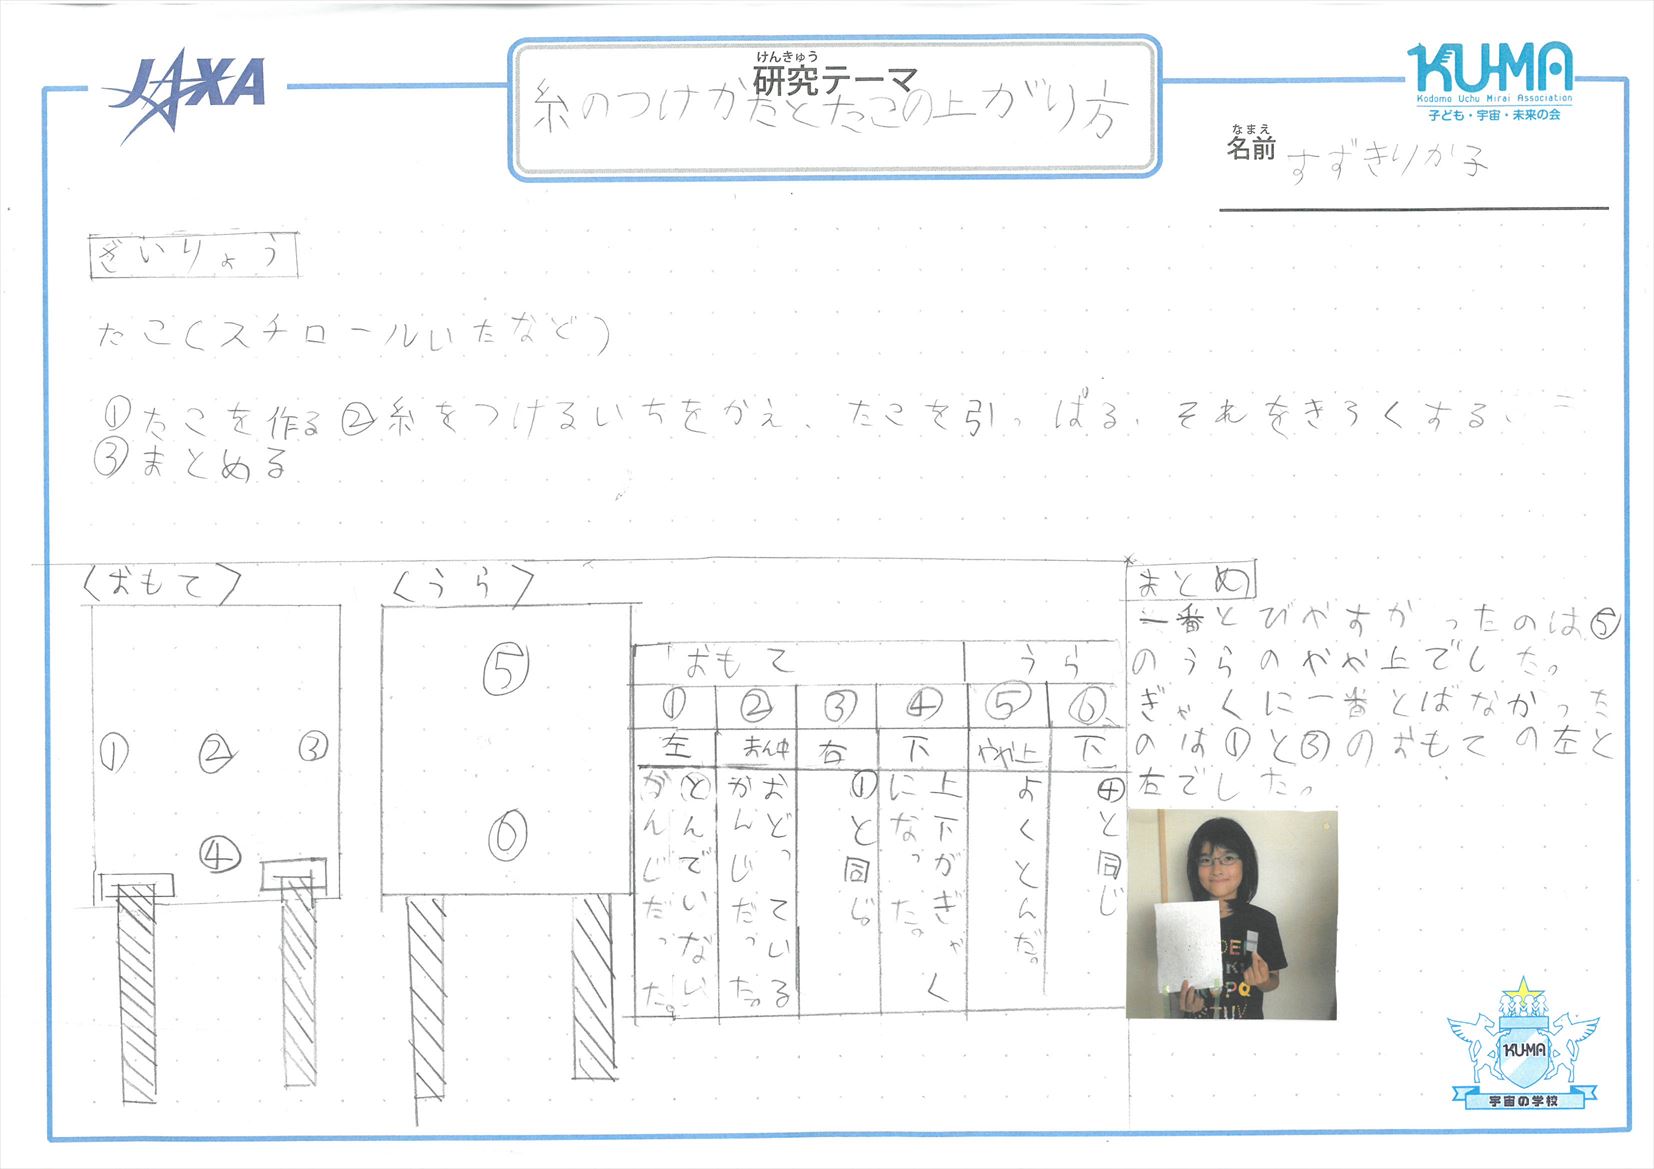 JAXA
けんきゅう
研究テーマ
糸のつけかたとたこの上がり方
KU-MA
Kodomo Uchu Mirai Association
子ども・宇宙・未来の会
なまえ
名前 すずきりか子
ざいりょう
たこ(スチロールいたなど)
①たこを作る②糸をつけるいちをかえ、たこを引っぱる、それをきろくする、
③まとめる
〈おもて〉
① ② ③
④
〈うら〉
⑤
⑥
おもて うら
① ② ③ ④ ⑤ ⑥
左 まん中 右 下 やや上 下
とんでいない
かんじだった。
おどっている
かんじだった。
①と同じ。
上下がぎゃく
になった。
よくとんだ。
④と同じ
まとめ
一番とびやすかったのは⑤
のうらのやや上でした。
ぎゃくに一番とばなかった
のは①と③のおもての左と
右でした。
KU-MA
宇宙の学校